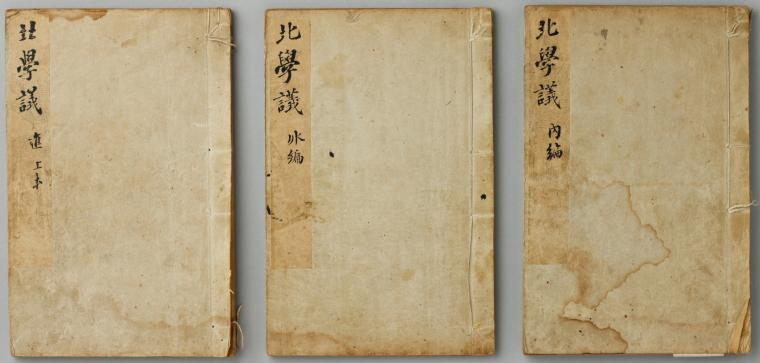 北學議 內編
北學議 外編
北學議 進上本